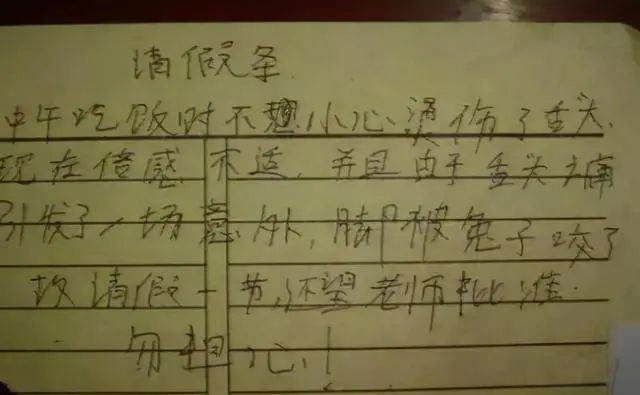 请假条
中午吃饭时不想小心烫伤了舌头.
现在倍感不适,并且由于舌头痛
引发了一场意外,脚被兔子咬了
故请假一节,还望老师批准.
勿担心!